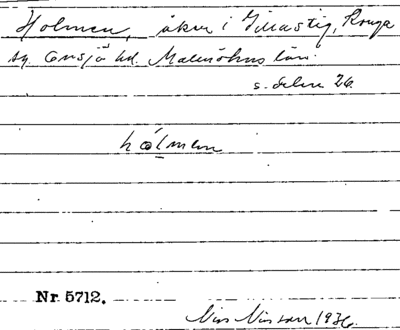 Holmen, åker i Gillastig, Konga
sn. Onsjö hd. Malmöhus län.
s. delen 26.
hólmen
Nr. 5712.
Nils Nilsson 1936.